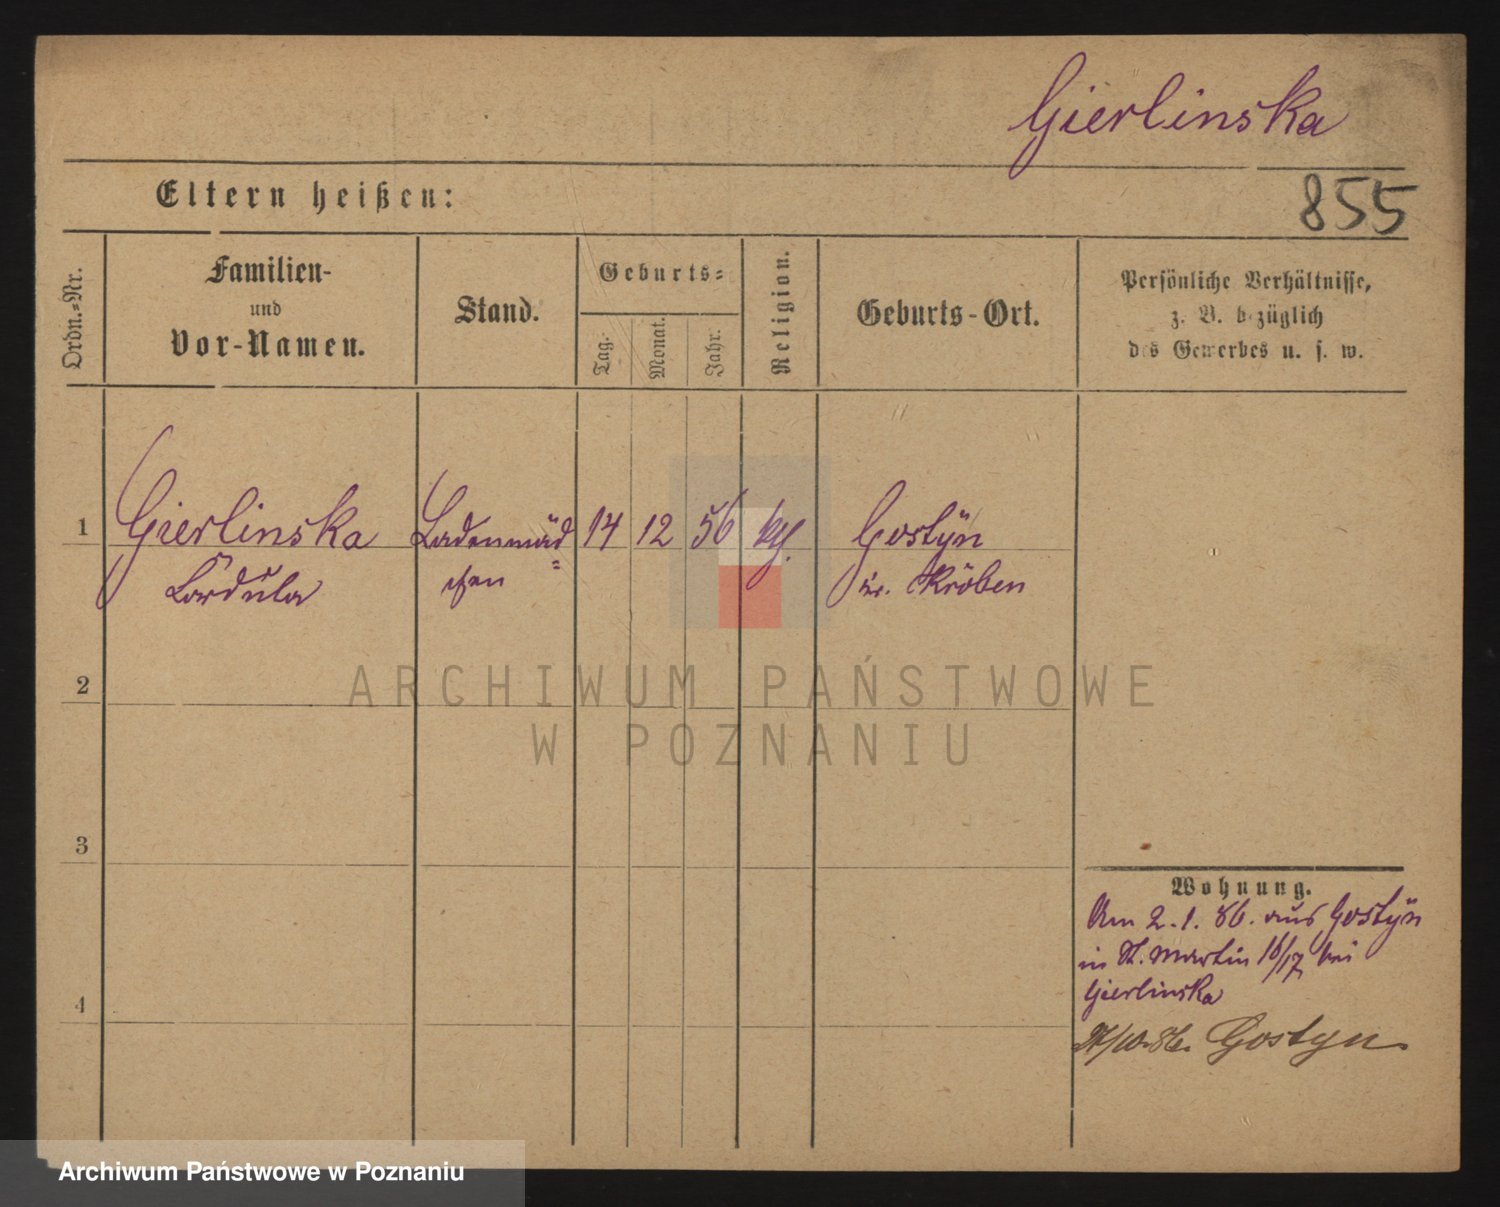 Gierlinska
Eltern heißen:
855
Ordn.-Nr.
Familien-
und
Vor-Namen.
Stand.
Geburts-
Tag.
Monat.
Jahr.
Religion.
Geburts-Ort.
Persönliche Verhältnisse,
z. B. bezüglich
des Gewerbes u. s. w.
1 Gierlinska Ladenmäd= 14 12 56 kth. Gostÿn
Cordula chen Kr. Kröben
2
ARCHIWUM PAŃSTWOWE
W POZNANIU
3
Wohnung.
Am 2.1.86. aus Gostÿn
in St. Martin 16/17 bei
Gierlinska
4
/10.86. Gostyn.
Archiwum Państwowe w Poznaniu